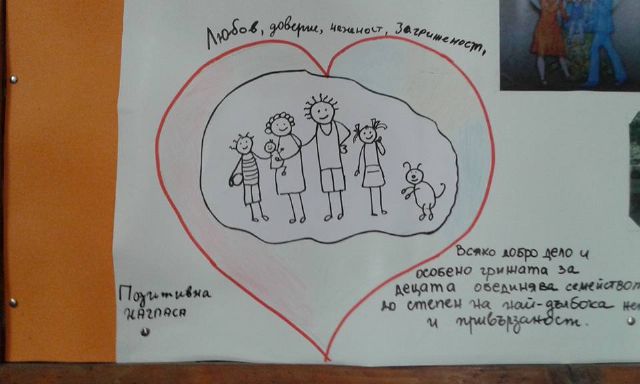 Любов, доверие, нежност, Загриженост,
Всяко добро дело и
особено грижата за
децата обединява семейството
до степен на най-дълбока
и привързаност.
Позитивна
нагласа